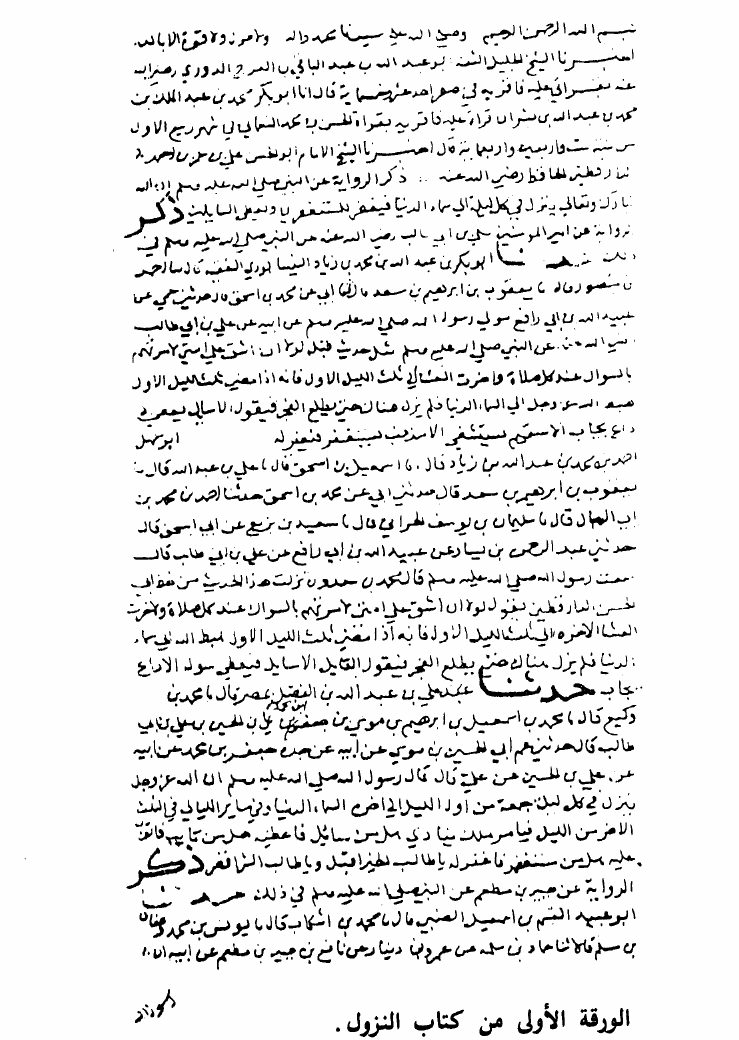 بسم الله الرحمن الرحيم وصلى الله على سيدنا محمد واله ولا حول ولا قوة الا بالله
اخبرنا الشيخ الجليل الثقة عبد الباقي بن الفرج الدوري رضي الله
عنه قال انا ابو بكر محمد بن عبد الملك بن
محمد بن عبد الله بن بشران قراءة عليه فاقر به بقراءة الحسن بن محمد في شهر ربيع الاول
من سنة ست واربعين واربعماية قال اخبرنا الشيخ الامام ابو الحسن علي بن عمر بن احمد
الدارقطني الحافظ رضي الله عنه ذكر الرواية عن النبي صلى الله عليه وسلم ان الله
تبارك وتعالى ينزل في كل ليلة الى سماء الدنيا فيغفر للمستغفرين ويعطي السايلين ذكر
الرواية عن امير المومنين علي بن ابي طالب رضي الله عنه عن النبي صلى الله عليه وسلم في
ذلك حدثنا ابو بكر بن عبد الله بن محمد بن زياد النيسابوري الفقيه قال احمد
بن منصور قال يعقوب بن ابرهيم بن سعد ابي عن محمد بن اسحق قال حدثني عمي عن
عبيد الله بن ابي رافع مولى رسول الله صلى الله عليه وسلم عن ابيه عن علي بن ابي طالب
رضي الله عنه عن النبي صلى الله عليه وسلم مثل حديث قبله لولا ان اشق على امتي لامرتهم
بالسواك عند كل صلاة واخرت العشاء الى ثلث الليل الاول فانه اذا مضى ثلث الليل الاول
هبط الله عز وجل الى السماء الدنيا فلم يزل هنالك حتى يطلع الفجر فيقول الا سائل يعطى
داع يجاب الا سقيم يستشفي الا مذنب يستغفر فيغفر له ابو سهل
احمد بن محمد بن عبد الله بن زياد قال اسمعيل بن اسحق قال علي بن عبد الله قال
يعقوب بن ابرهيم بن سعد قال حدثني ابي عن محمد بن اسحق حدثنا احمد بن محمد بن
قال سليمان بن يوسف الحراني قال سعيد بن بزيع عن ابن اسحق قال
حدثني عبد الرحمن بن يسار عن عبيد الله بن ابي رافع عن علي بن ابي طالب قال
سمعت رسول الله صلى الله عليه وسلم قال محمد بن نزلت هذا الحديث من حفظ ابي
الحسن الدارقطني يقول لولا ان اشق على امتي لامرتهم بالسواك عند كل صلاة ولاخرت
العشا الاخرة الى ثلث الليل الاول فانه اذا مضى ثلث الليل الاول هبط الله الى سماء
الدنيا فلم يزل هنالك حتى يطلع الفجر فيقول القايل الا سايل فيعطى سوله الا داع
يجاب حدثنا علي بن عبد الله بن الفضل بمصر قال محمد بن
وكيع قال محمد بن اسمعيل بن ابرهيم بن موسى بن جعفر بن محمد بن علي بن الحسين بن علي بن ابي
طالب قال حدثني عم ابي الحسين بن موسى عن ابيه عن جده جعفر بن محمد عن ابيه
عن علي بن الحسين عن علي قال قال رسول الله صلى الله عليه وسلم ان الله عز وجل
ينزل في كل ليلة جمعة من اول الليل الى اخره السماء الدنيا وفي ساير الليالي في الثلث
الاخر من الليل فيامر ملكا ينادي هل من سائل فاعطيه هل من تايب فاتوب
عليه هل من مستغفر فاغفر له يا طالب الخير اقبل ويا طالب الشر اقصر ذكر
الرواية عن جبير بن مطعم عن النبي صلى الله عليه وسلم في ذلك حدثنا
ابو عبيد القسم بن اسمعيل الضبي قال محمد بن اشكاب قال يونس بن محمد وعفان
بن مسلم قالا ثنا حماد بن سلمة عن عمرو بن دينار عن نافع بن جبير بن مطعم عن ابيه ان
الورقة الأولى من كتاب النزول .